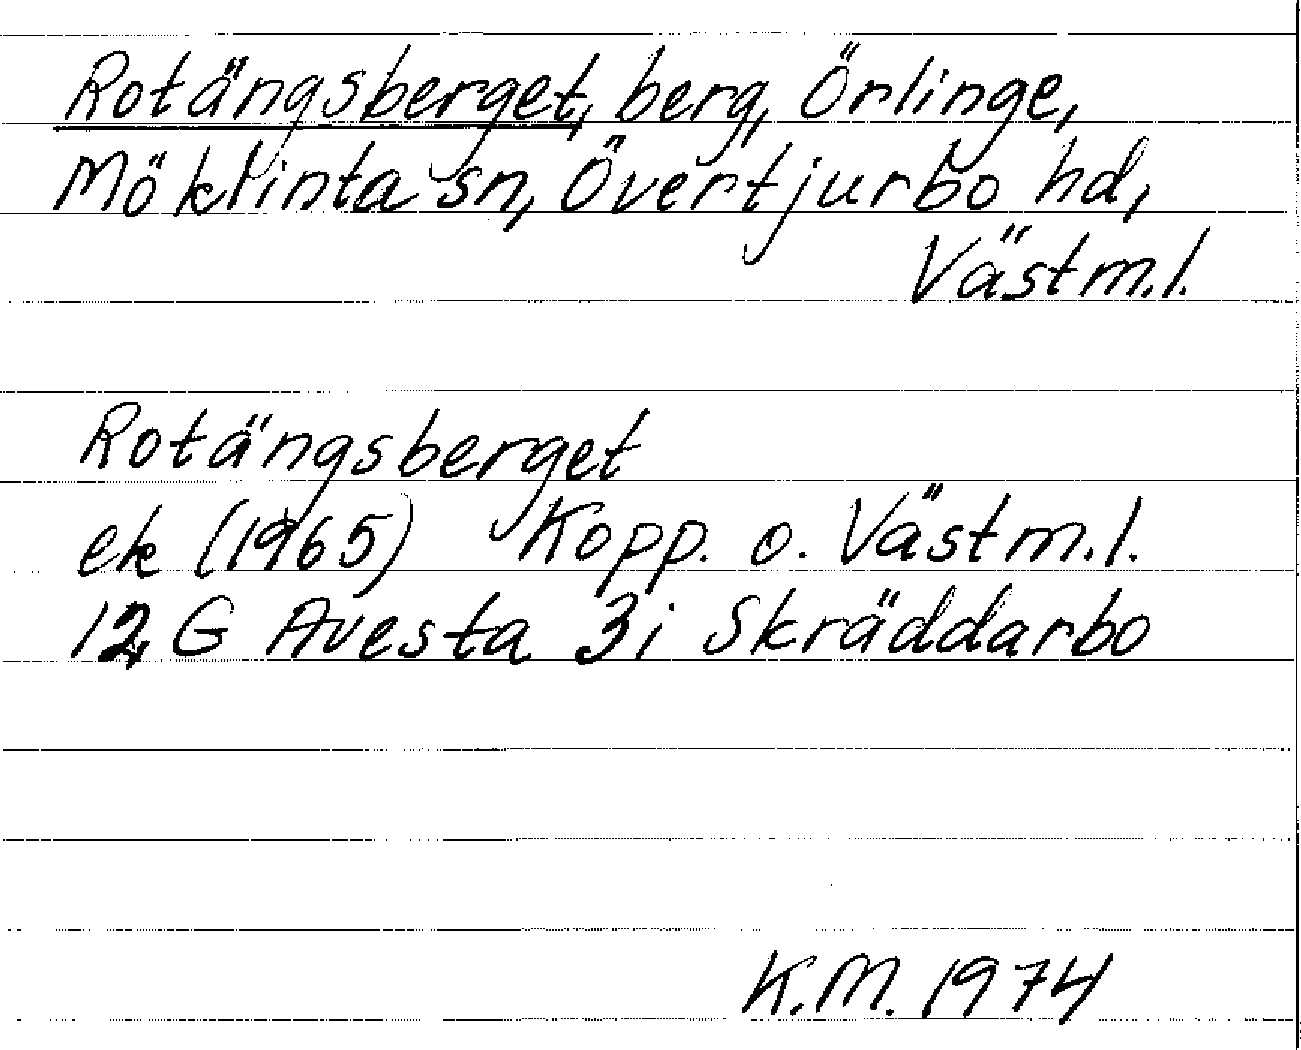 Rotängsberget, berg, Örlinge,
Möklinta sn, Övertjurbo hd,
Västm.l.
Rotängsberget
ek (1965) Kopp. o. Västm.l.
12 G Avesta 3i Skräddarbo
K.M. 1974